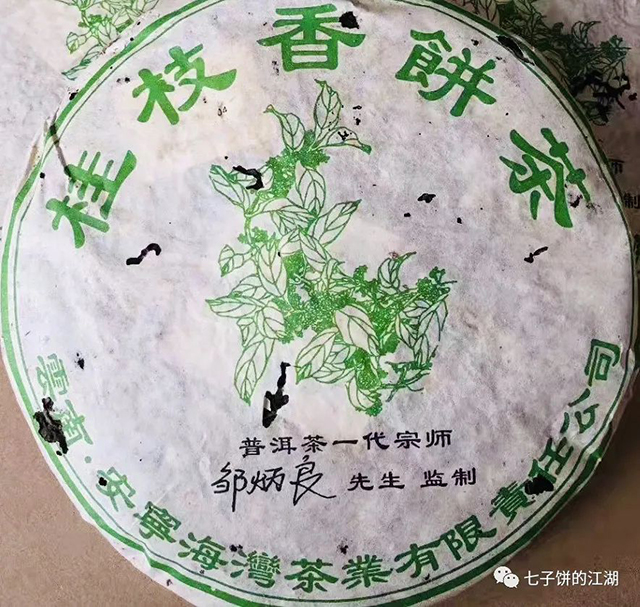 桂枝香餅茶
普洱茶一代宗师
邹炳良 先生 监制
雲南·安寧海灣茶業有限責任公司
师
制
七子饼的江湖